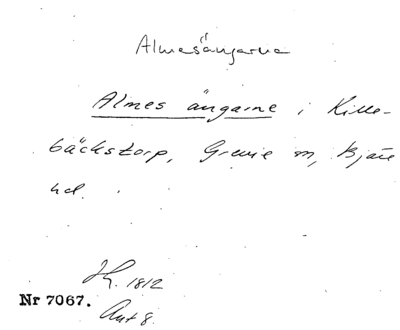 Almesängarna
Almes ängarne i Kille-
bäckstorp, Grevie sn, Bjäre
hd.
Jh. 1812
Nr 7067.
Akt 8.